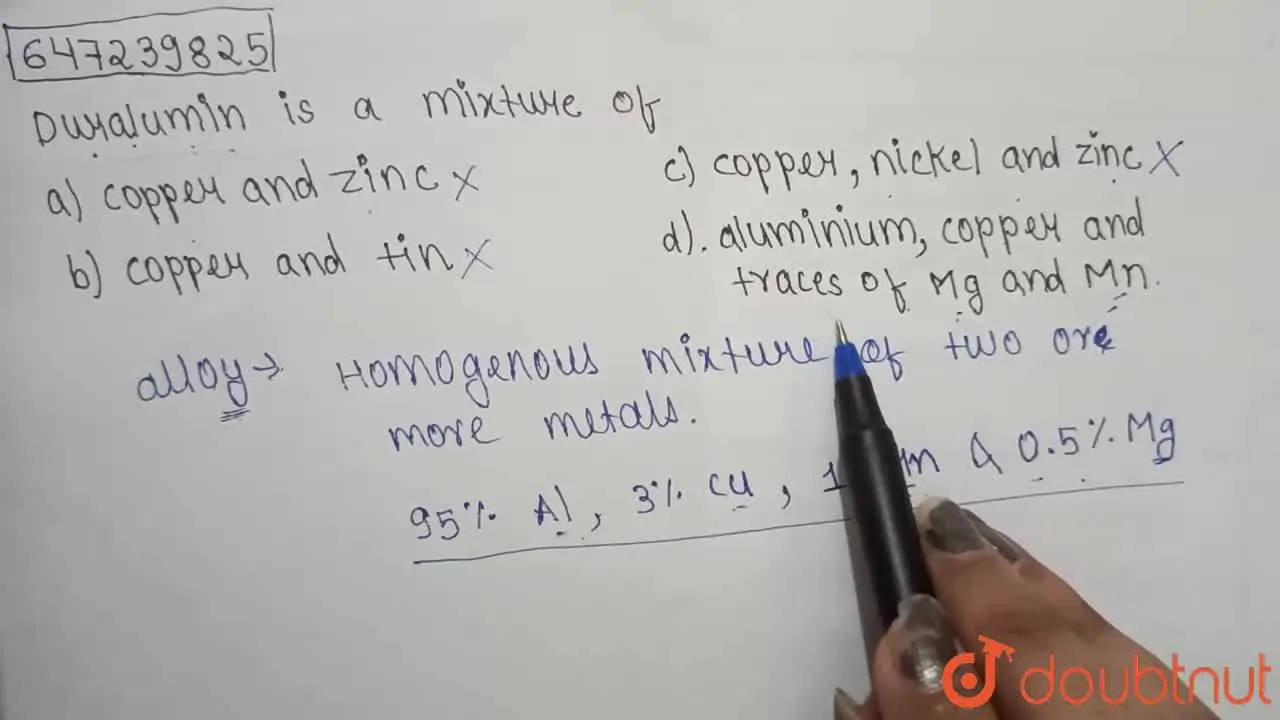 647239825
Duralumin is a mixture of
a) copper and zinc X
b) copper and tin X
c) copper, nickel and zinc X
d). aluminium, copper and
traces of Mg and Mn.
alloy → Homogenous mixture of two ore
more metals.
95% Al, 3% Cu, 1 & 0.5% Mg
doubtnut